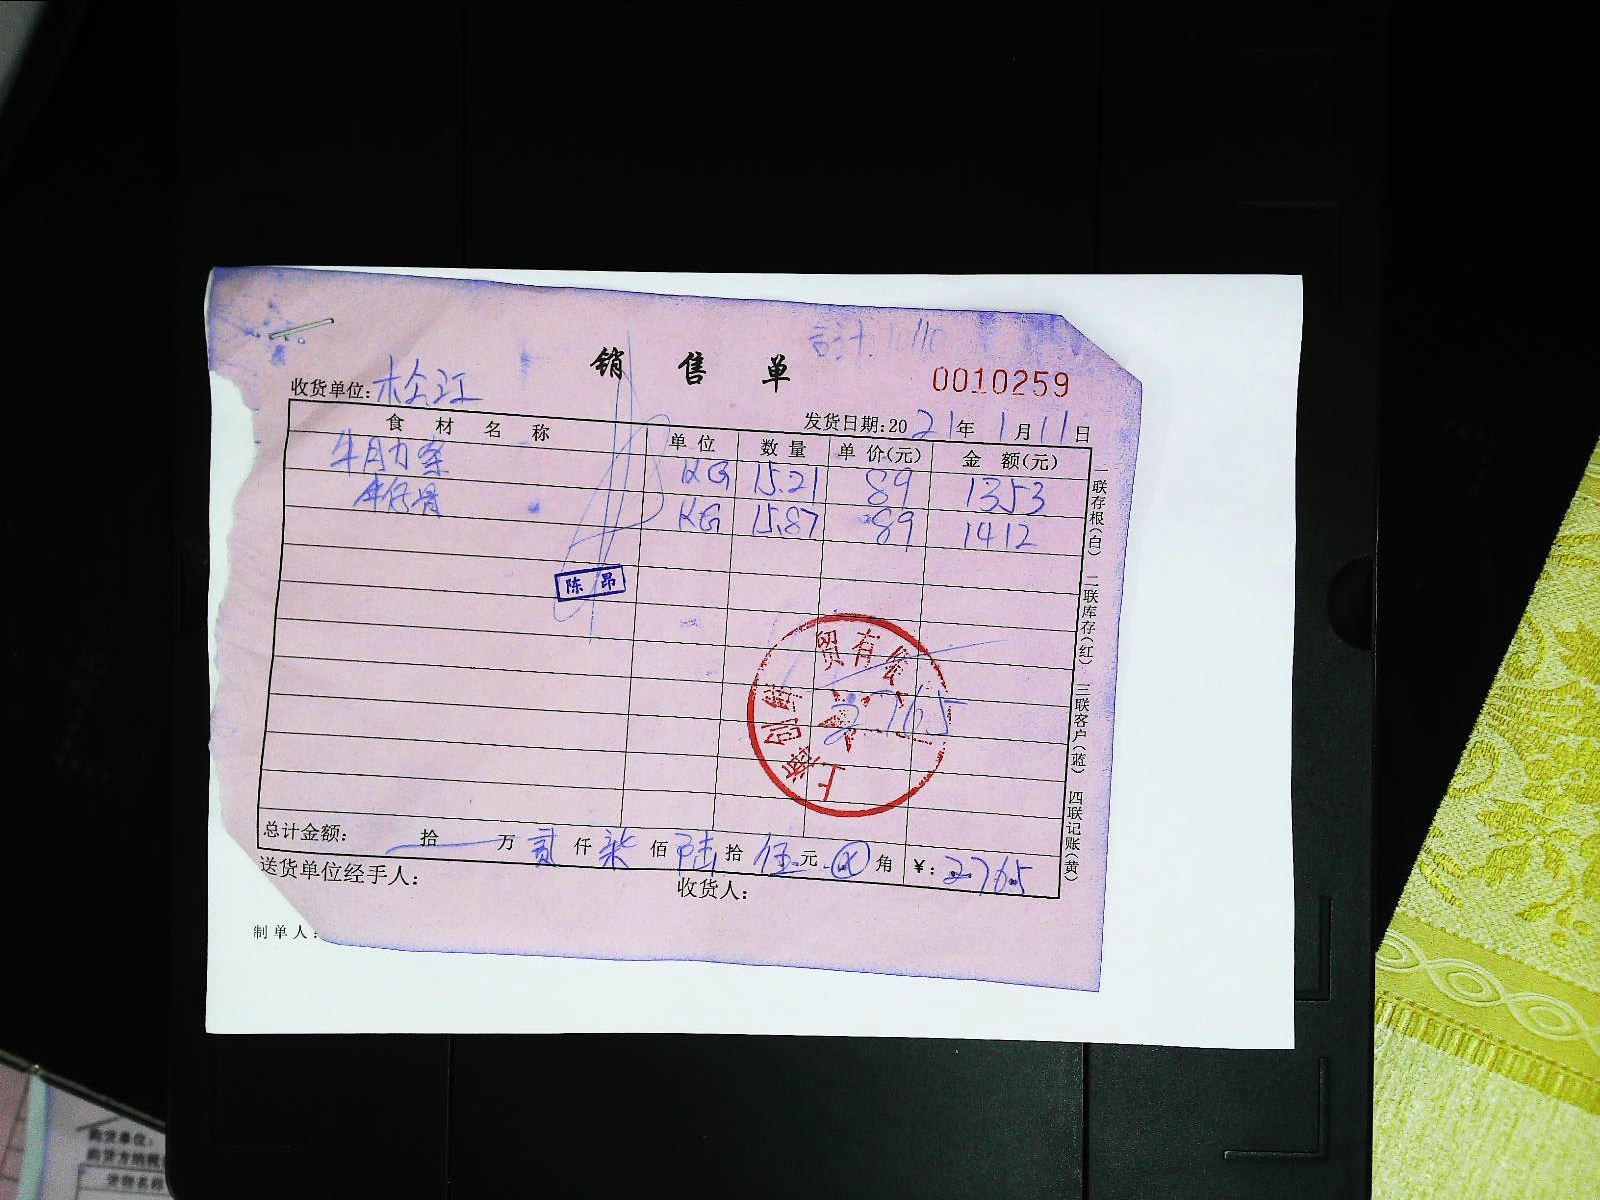 销售单
0010259
收货单位: 松江
发货日期:2021年1月11日
食材名称 单位 数量 单价(元) 金额(元)
牛肋条 KG 15.21 89 1353
牛仔骨 KG 15.87 89 1412
陈昂
贸有
上海创
2765
总计金额: 拾 万 贰仟 柒佰 陆拾 伍元 角 ¥: 2765
送货单位经手人: 收货人:
制单人:
一联存根(白) 二联库存(红) 三联客户(蓝) 四联记账(黄)
货物名称